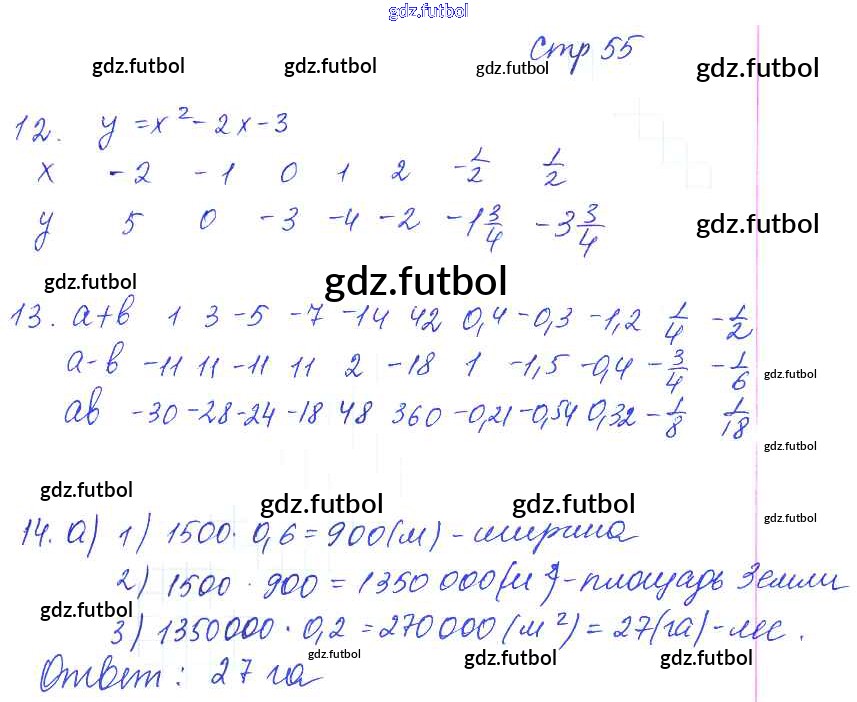 gdz.futbol
Стр 55
gdz.futbol gdz.futbol gdz.futbol gdz.futbol
12. y = x² - 2x - 3
x -2 -1 0 1 2 -1/2 1/2
y 5 0 -3 -4 -2 -1 3/4 -3 3/4
gdz.futbol
gdz.futbol gdz.futbol
13. a+b 1 3 -5 -7 -14 42 0,4 -0,3 -1,2 1/4 -1/2
a-b -11 11 -11 11 2 -18 1 -1,5 -0,4 -3/4 -1/6
gdz.futbol
ab -30 -28 -24 -18 48 360 -0,21 -0,54 0,32 -1/8 1/18
gdz.futbol
gdz.futbol gdz.futbol gdz.futbol gdz.futbol
14. а) 1) 1500 · 0,6 = 900 (м) - ширина
2) 1500 · 900 = 1350 000 (м²) - площадь Земли
gdz.futbol
3) 1350000 · 0,2 = 270000 (м²) = 27 (га) - лес.
gdz.futbol gdz.futbol gdz.futbol
Ответ: 27 га